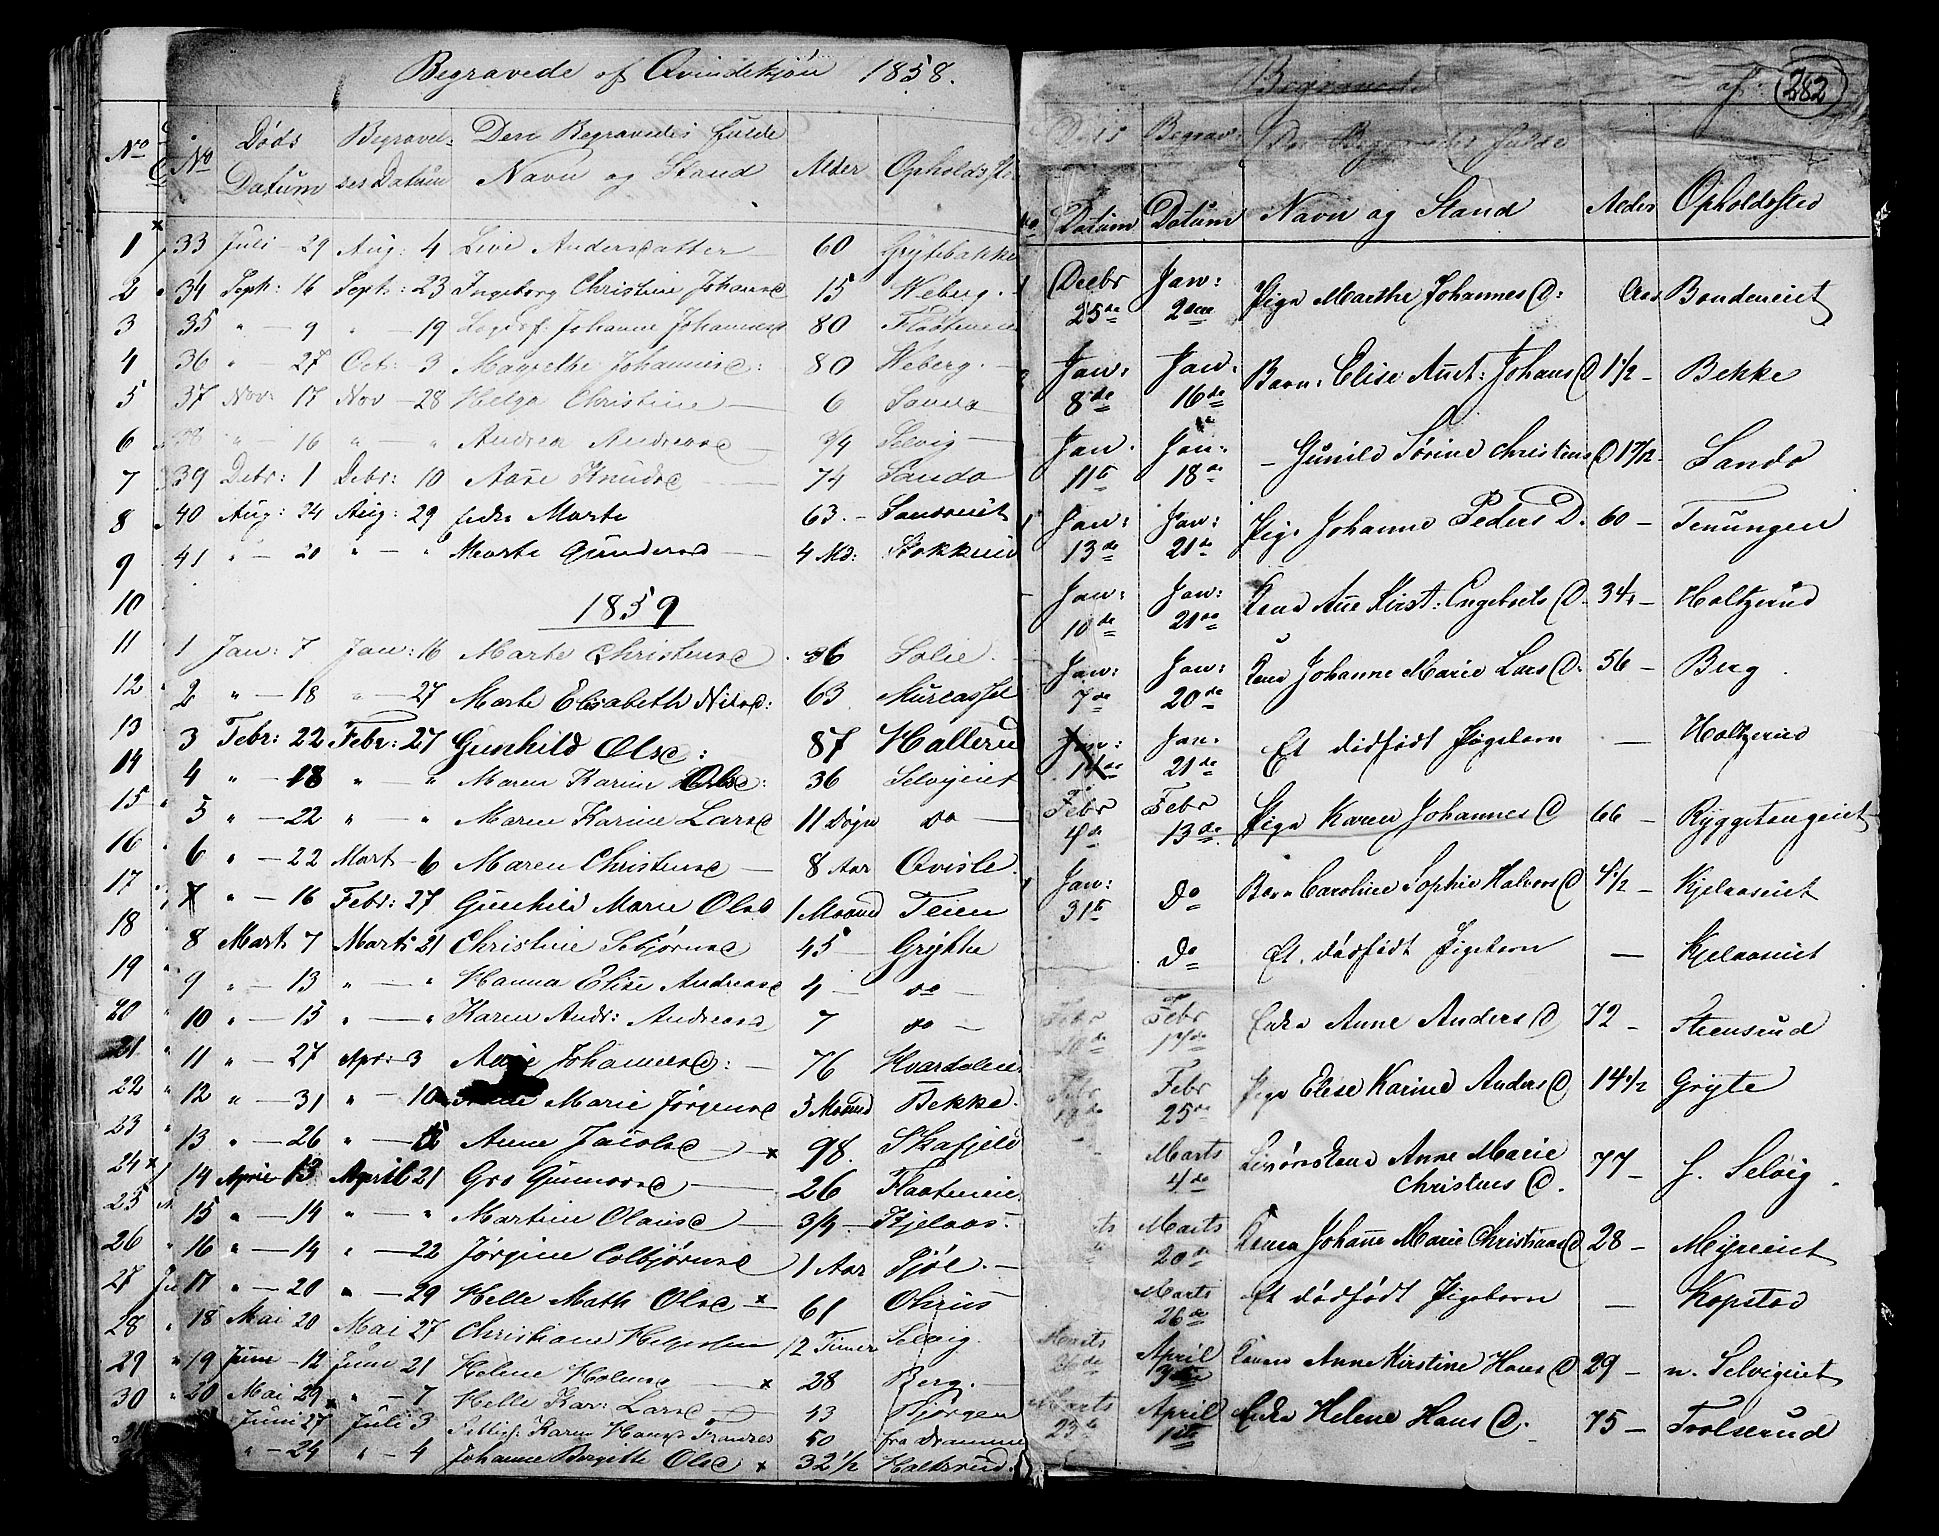 Begravede af Qvindekjön 1858.
No Døds Datum Begravelses Datum Den Begravedes fulde Navn og Stand Alder Opholdsste
33 Juli 29 Aug: 4 Live Andersdatter 60 Grÿtebakke
34 Sept: 16 Sept: 23 Ingeborg Christine Johansd 15 Weberg.
35 " 9 " 19 Johanne Johannesd 80
36 " 27 Oct: 3 Magrethe Johannesd: 80 Weberg.
37 Nov: 17 Nov 28 Helga Christine 6 Sando
38 " 16 " " Andrea Andreasd 3/4 Selvig
39 Debr: 1 Debr: 10 Aase Knudsd 74 Sando
40 Aug: 24 Aug: 29 Enke Marte 63. Sandoeiet
41 " 20 " " Marte Gundersd 4 Md: Stokkeie
1859
1 Jan: 7 Jan: 16 Marte Christensd 36 Solie.
2 " 18 " 27 Marte Elisabeth Nilsd: 63
3 Febr: 22 Febr: 27 Gunhild Olsd: 87 Halleru
4 " 18 " " Maren Karine Olsd: 36 Selvigeiet
5 " 22 " " Maren Karine Larsd 11 Døgn do
6 " 22 Mart 6 Maren Christensd 8 Aar Qvisle.
7 " 16 Febr: 27 Gunhild Marie Olsd 1 Maaned Teien
8 Mart 7 Marts 21 Christine Sebjørnsd 45 Grÿtte
9 " 13 " " Hanna Elise Andreasd 4 do
10 " 15 " " Karen Andr: Andreasd 7 do
11 " 27 Apr: 3 Anne Johannesd: 76 Kvardalen
12 " 31 " 10 Marie Jørgensd 5 Maaned Bekke.
13 " 26 " Anne Jacobsd x 98. Skafjeld
14 April 13 April 21 Gro Gunnarsd 26
15 " 14 " " Martine Olausd 3/4 Kjelaas.
16 " 14 " 22 Jørgine Colbjørnsd 1 Aar Tjøl.
17 " 20 " 29 Helle Math Olsd x 61
18 Mai 20 Mai 27 Christiane 12 Timer Selvig.
19 Juni 12 Juni 21 Helene x 28 Berg.
20 Mai 29 " 7 Helle Kar: Larsd 43 Bjørgen
Juni 27 Juli 3 Karen 50 fra Dramme
" 24 " 4 Johanne Birgitte Olsd x 32 1/2 Holtsrud.
No
1
2
3
4
5
6
7
8
9
10
11
12
13
14
15
16
17
18
19
20
21
22
23
24
25
26
27
28
29
30
282
Begravede af
Døds Datum Begrav: Datum Den Begravedes fulde Navn og Stand Alder Opholdsted
Decbr 25de Jan: 2den Pige Marthe Johannes D: Bondeneiet
Jan: 8de Jan: 16de Barn: Elise Anet: Johans D 1 1/2 Bekke
Jan. 11te Jan: 18de Gunild Sørine Christens D 1 7/12 Sando
Jan: 13de Jan: 21de Pige Johanne Peders D. 60 Tenungen
Jan: 10de Jan: 21de Kone Ane Kirst: Engebrets D. 34 Holtzerud
Jan: 7de Jan: 20de Kone Johanne Marie Lars D: 56 Berg.
Jan: 14de Jan: 21de Et dødfødt Pigebarn Holtzerud
Febr 4de Febr 13de Pige Karen Johannes D 66 Ryggetangeiet
Jan: 31te Do Barn Caroline Sophie Halvors D 4 1/2 Kjelaaseiet
Do Et dødfødt Pigebarn Kjelaaseiet
Febr 10de Febr 17de Enke Anne Anders D 72 Steensrud
Febr Febr 25de Pige Elise Karine Anders D 14 1/2 Gryte
Marts 4de Anne Marie Christens D. 77 Selvig.
Marts 20de Konen Johanne Marie Christians D 28 Myreeiet
Marts 26de Et dødfødt Pigebarn Kopstad
Marts 26de April 3die Konen Anne Kirstine Hans D 29 n. Selvigeiet
Marts 23de April 1ste Enke Helene Hans D. 75 Trolserud